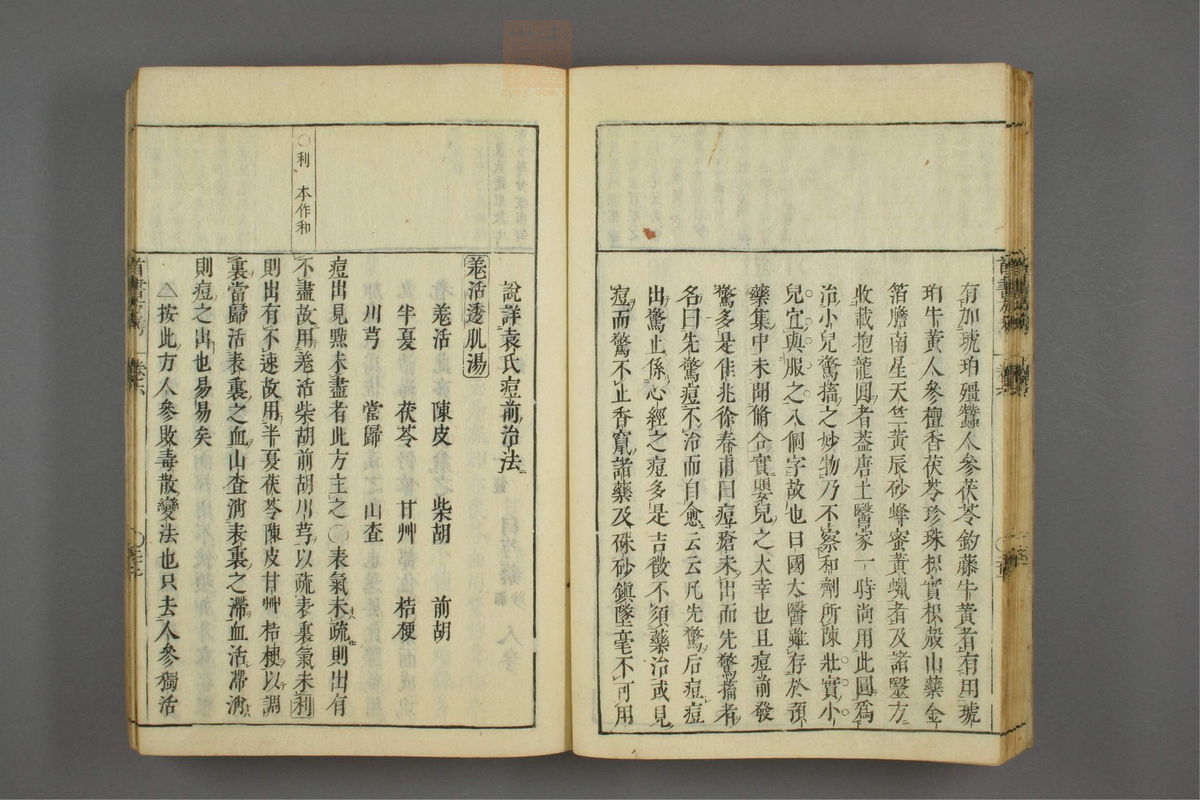 有加琥珀殭蠶人參茯苓釣藤牛黃者有用琥
珀牛黃人參檀香茯苓珍珠枳實枳殼山藥金
箔膽南星天竺黃辰砂蜂蜜黃蠟者及諸醫方
收載抱龍圓者葢唐土醫家一時尚用此圓爲
治小兒驚搐之妙物乃不察和劑所陳壯實小
兒宜與服之八個字故也日國太醫雖存於預
藥集中未聞脩合實嬰兒之大幸也且痘前發
驚多是佳兆徐春甫曰痘瘡未出而先驚搐者
名曰先驚痘不治而自愈云云凡先驚后痘痘
出驚止係心經之痘多是吉徵不須藥治或見
痘而驚不止香竄諸藥及硃砂鎮墜毫不可用
說詳袁氏痘前治法
羗活透肌湯
羗活 陳皮 柴胡 前胡
半夏 茯苓 甘艸 桔梗
川芎 當歸 山査
痘出見㸃未盡者此方主之〇表氣未疏則出有
不盡故用羗活柴胡前胡川芎以疏表裏氣未利
則出有不速故用半夏茯苓陳皮甘艸桔梗以調
裏當歸活表裏之血山査消表裏之滯血活滯消
則痘之出也易易矣
△按此方人參敗毒散變法也只去人參獨活
〇利 本作和